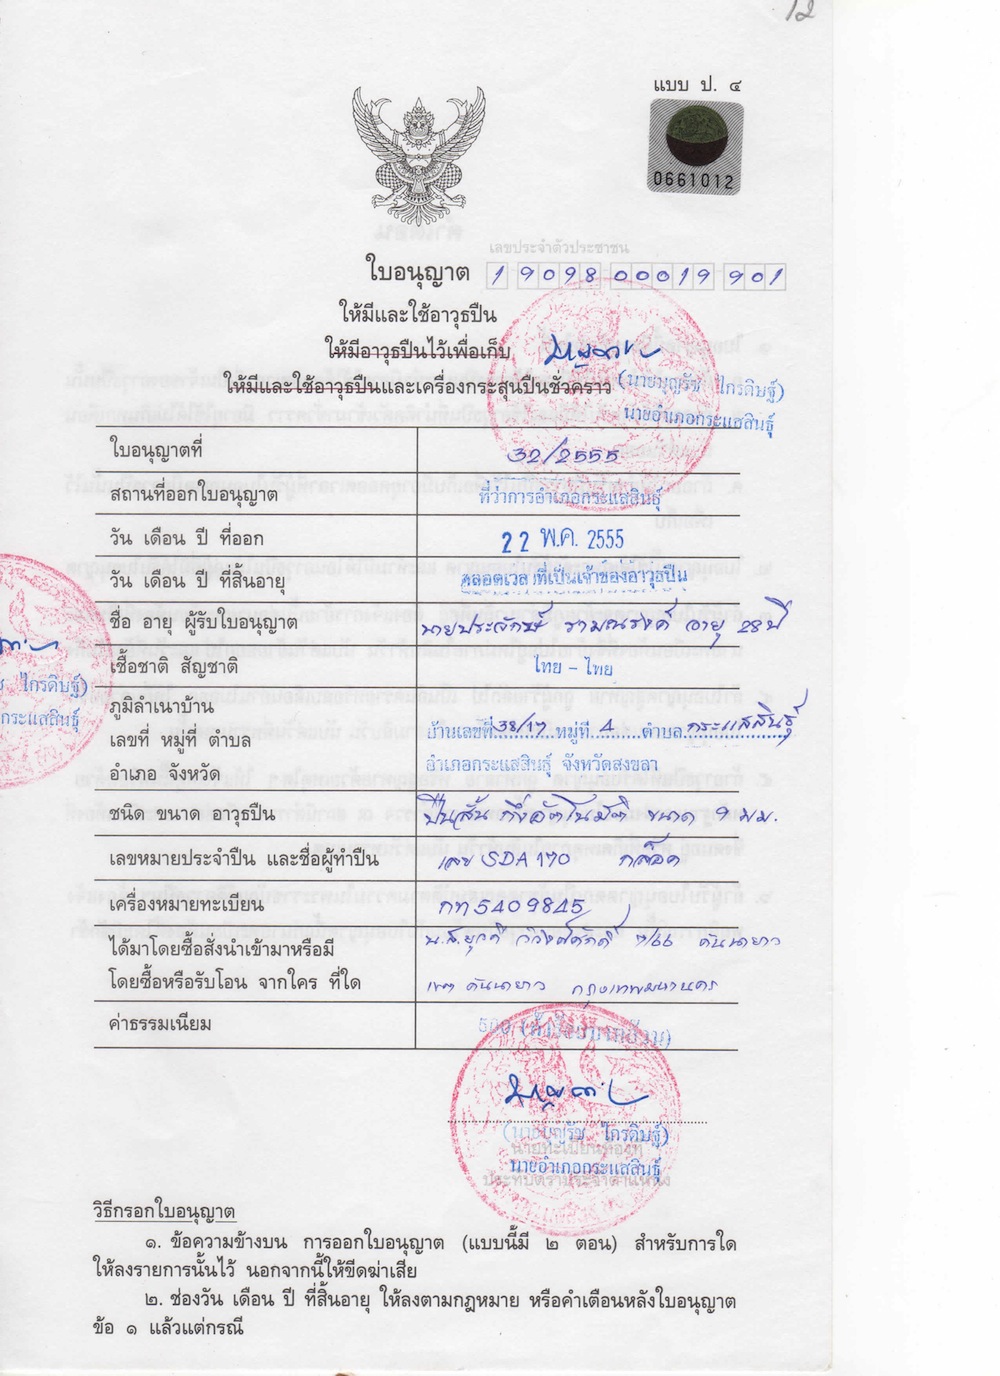 12
แบบ ป. ๔
0661012
เลขประจำตัวประชาชน
ใบอนุญาต 1 9098 00019 901
ให้มีและใช้อาวุธปืน
ให้มีอาวุธปืนไว้เพื่อเก็บ
ให้มีและใช้อาวุธปืนและเครื่องกระสุนปืนชั่วคราว
(นายบุญรัช ไกรดิษฐ์)
นายอำเภอกระแสสินธุ์
ใบอนุญาตที่ 32/2555
สถานที่ออกใบอนุญาต ที่ว่าการอำเภอกระแสสินธุ์
วัน เดือน ปี ที่ออก 22 พ.ค. 2555
วัน เดือน ปี ที่สิ้นอายุ ตลอดเวลาที่เป็นเจ้าของอาวุธปืน
ชื่อ อายุ ผู้รับใบอนุญาต นายประลักษ์ รามณรงค์ อายุ 28 ปี
เชื้อชาติ สัญชาติ ไทย - ไทย
ไกรดิษฐ์)
กระแสสินธุ์
ภูมิลำเนาบ้าน
เลขที่ หมู่ที่ ตำบล บ้านเลขที่ 38/17 หมู่ที่ 4 ตำบล กระแสสินธุ์
อำเภอ จังหวัด อำเภอกระแสสินธุ์ จังหวัดสงขลา
ชนิด ขนาด อาวุธปืน ปืนสั้น กึ่งอัตโนมัติ ขนาด 9 ม.ม.
เลขหมายประจำปืน และชื่อผู้ทำปืน เลข SDA 170 กล็อค
เครื่องหมายทะเบียน กท 5409845
ได้มาโดยซื้อสั่งนำเข้ามาหรือมี น.ส. 7/66 คันนายาว
โดยซื้อหรือรับโอน จากใคร ที่ใด เขต คันนายาว กรุงเทพมหานคร
ค่าธรรมเนียม
(นายบุญรัช ไกรดิษฐ์)
นายทะเบียนท้องที่
นายอำเภอกระแสสินธุ์
ประทับตราประจำตำแหน่ง
วิธีกรอกใบอนุญาต
๑. ข้อความข้างบน การออกใบอนุญาต (แบบนี้มี ๒ ตอน) สำหรับการใด
ให้ลงรายการนั้นไว้ นอกจากนี้ให้ขีดฆ่าเสีย
๒. ช่องวัน เดือน ปี ที่สิ้นอายุ ให้ลงตามกฎหมาย หรือคำเตือนหลังใบอนุญาต
ข้อ ๑ แล้วแต่กรณี